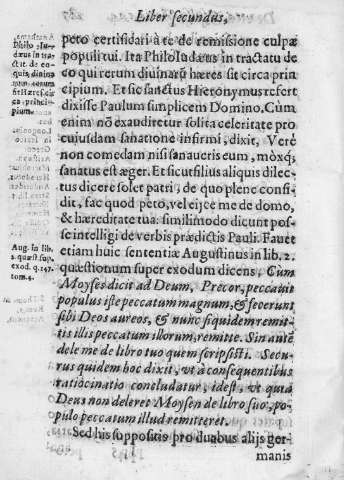 Liber secundus,
peto certificari à te de remissione culpæ
populi tui. Ita Philo Iudæus in tractatu de
eo qui rerum diuinarũ hæres sit circa prin
cipium. Et sic sanctus Hieronymus refert
dixisse Paulum simplicem Domino. Cùm
enim nõ exaudiretur solita celeritate pro
cuiusdam sanatione infirmi, dixit, Verè
non comedam nisi sanaueris eum, moxq́;
sanatus est æger. Et sicut filius aliquis dilec-
tus dicere solet patri, de quo plene confi-
dit, fac quod peto, vel eijce me de domo,
& hæreditate tua: simili modo dicunt pos-
se intelligi de verbis prædictis Pauli. Fauet
etiam huic sententiæ Augustinus in lib. 2.
quæstionum super exodum dicens, Cum
Moyses dicit ad Deum, Precor, peccauit
populus iste peccatum magnum, & fecerunt
sibi Deos aureos, & nunc siquidem remit-
tis illis peccatum illorum, remitte. Sin autẽ
dele me de libro tuo quem scripsisti. Secu-
rus quidem hoc dixit, vt à consequentibus
ratiocinatio concludatur, idest, vt quia
Deus non deleret Moysen de libro suo, po-
pulo peccatum illud remitteret.
Sed his suppositis pro duabus alijs ger-
manis
Philo, Iu-
dæus in tra-
ctat. de eo
quis diuina
rum
sit Hæres
ca, princi-
pium.
Aug. in lib.
2. quæst. sup.
exod. q. 147.
tom. 4.